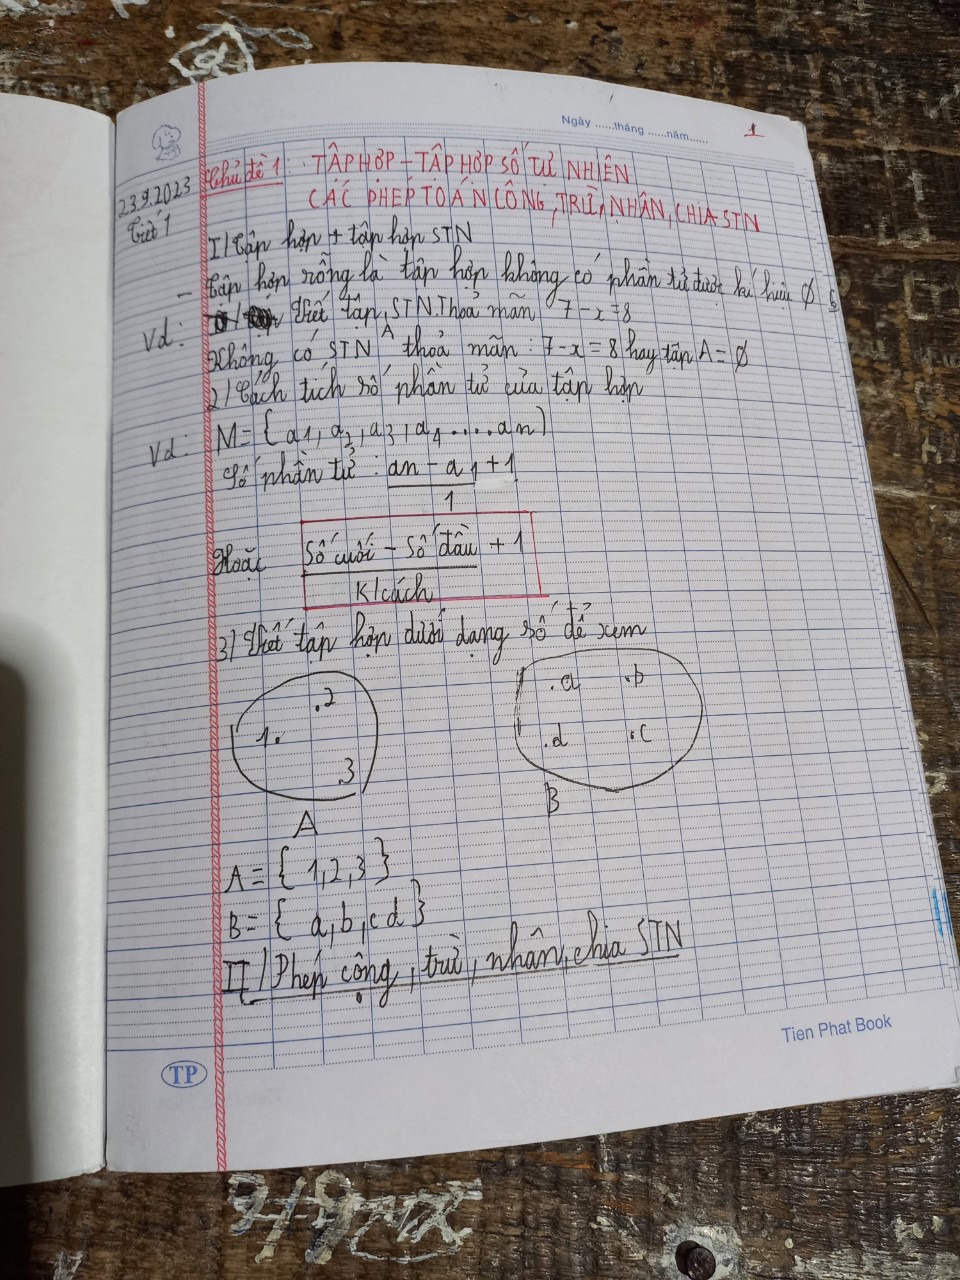 Ngày ......tháng ......năm......
1
23.9.2023
Chủ đề 1: TẬP HỢP - TẬP HỢP SỐ TỰ NHIÊN
Tiết 1
CÁC PHÉP TOÁN CỘNG, TRỪ, NHÂN, CHIA STN
I/ Tập hợp + tập hợp STN
- Tập hợp rỗng là tập hợp không có phần tử được kí hiệu ∅
Vd: Viết tập A STN.Thoả mãn 7-x=8
Không có STN thoả mãn: 7-x=8 hay tập A=∅
2/ Cách tích số phần tử của tập hợp
Vd: M={a1, a2, a3, a4.....an}
Số phần tử: an - a1 + 1
1
Hoặc Số cuối - Số đầu + 1
K/cách
3/ Viết tập hợp dưới dạng số để xem
.2
1.
.3
A
.a .b
.d .c
B
A={ 1,2,3 }
B={ a,b,c d }
II/ Phép cộng, trừ, nhân, chia STN
Tien Phat Book
TP